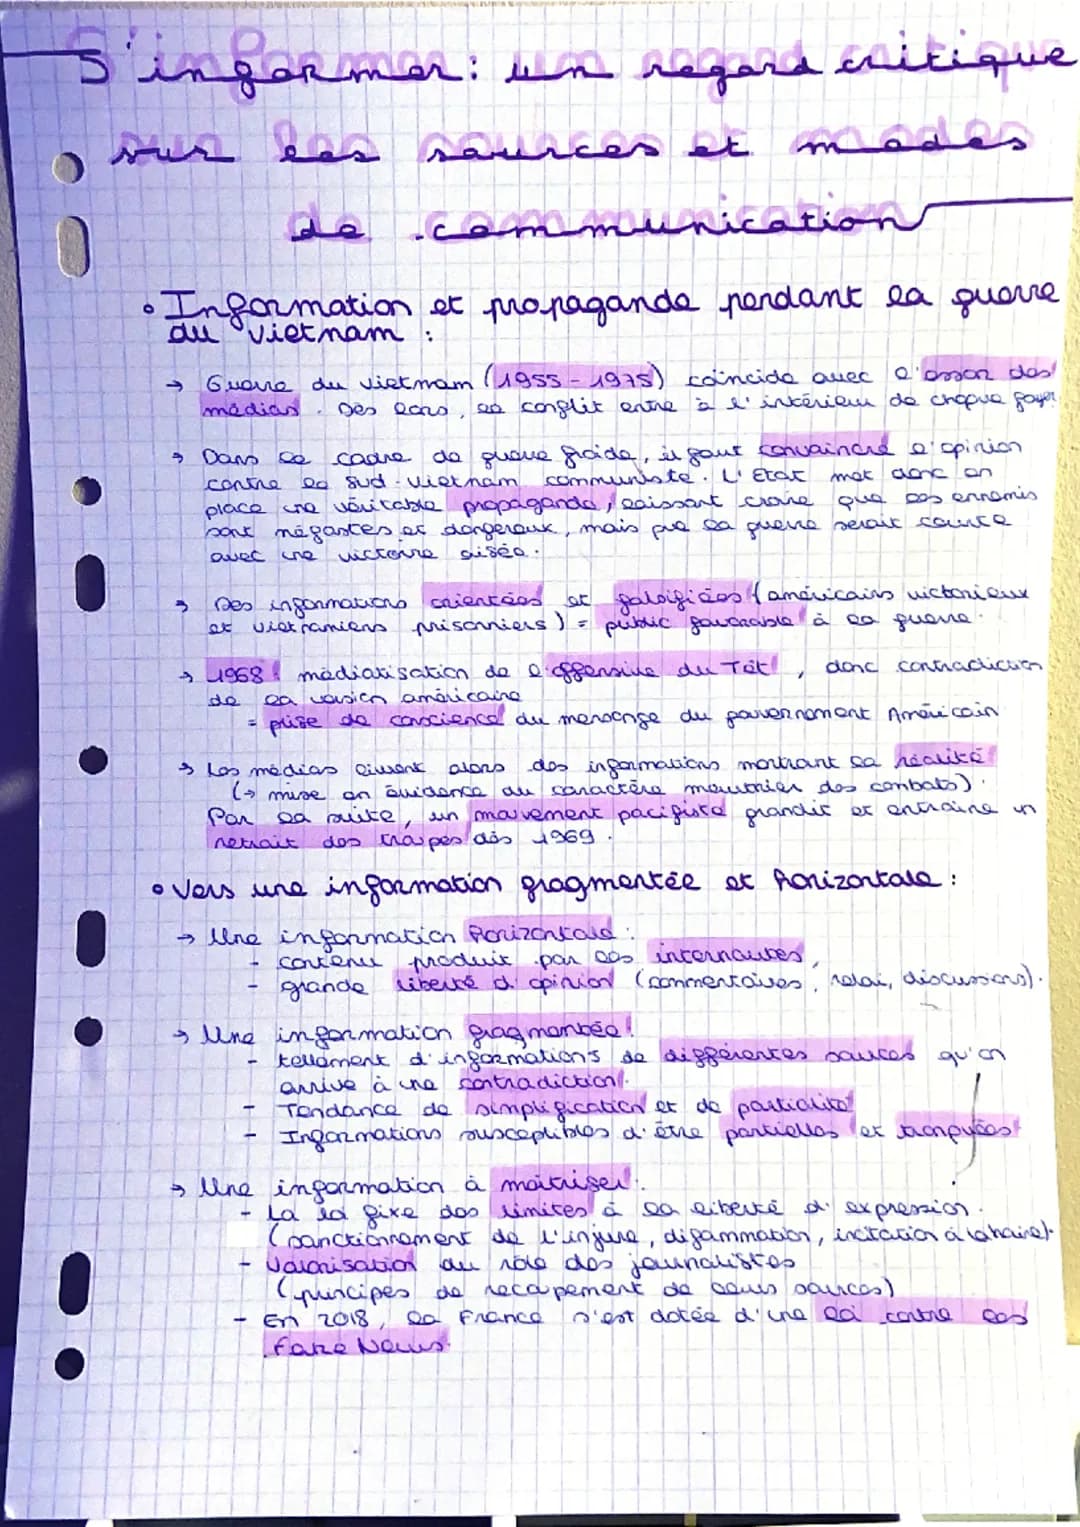 S'informer : un regard critique
sur les sources et modes
de communication
• Information et propagande pendant la guerre
du vietnam :
→ Guerre du vietnam (1955 - 1975) coïncide avec l'essor des
médias. Dès lors, le conflit entre à l'intérieur de chaque foyer
→ Dans le cadre de guerre froide, il faut convaincre l'opinion
contre le Sud-vietnam communiste. L'Etat met donc en
place une véritable propagande, laissant croire que les ennemis
sont néfastes et dangereux, mais que la guerre serait courte
avec une victoire aisée.
→ Des informations orientées et falsifiées (américains victorieux
et vietnamiens prisonniers) = public favorable à la guerre.
→ 1968 : médiatisation de l'offensive du Têt, donc contradiction
de la version américaine
= prise de conscience du mensonge du gouvernement Américain
→ Les médias livrent alors des informations montrant la réalité
(→ mise en évidence du caractère meurtrier des combats).
Par la suite, un mouvement pacifiste grandit et entraine un
retrait des troupes dès 1969.
• Vers une information fragmentée et horizontale :
→ Une information horizontale :
- contenu produit par les internautes,
- grande liberté d'opinion (commentaires, relai, discussions).
→ Une information fragmentée :
- tellement d'informations de différentes sources qu'on
arrive à une contradiction.
- Tendance de simplification et de partialité
- Informations susceptibles d'être partielles et tronquées
→ Une information à maitriser :
- La loi fixe des limites à la liberté d'expression.
(sanctionnement de l'injure, diffammation, incitation à la haine).
- Valorisation du rôle des journalistes
(principes de recoupement de leurs sources)
- En 2018, la France s'est dotée d'une loi contre les
Fake News.